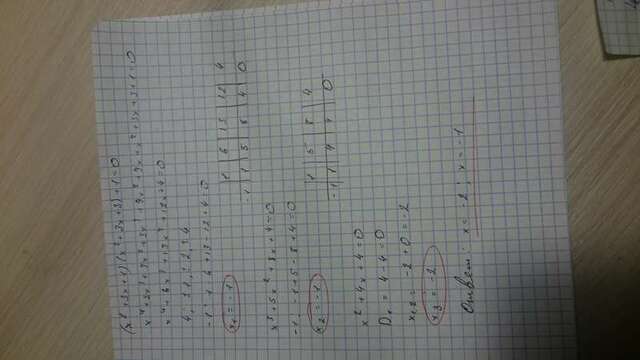 (x² + 3x + 1)(x² + 3x + 3) + 1 = 0
x⁴ + 3x³ + 3x² + 3x³ + 9x² + 9x + x² + 3x + 3 + 1 = 0
x⁴ + 6x³ + 13x² + 12x + 4 = 0
4: ±1, ±2, ±4
-1: 1 - 6 + 13 - 12 + 4 = 0
x₁ = -1
1 6 13 12 4
-1 1 5 8 4 0
x³ + 5x² + 8x + 4 = 0
-1: -1 + 5 - 8 + 4 = 0
x₂ = -1
1 5 8 4
-1 1 4 4 0
x² + 4x + 4 = 0
D₁ = 4 - 4 = 0
x₁,₂ = -2 + 0 = -2
x₃ = -2
Ответ: x = -2; x = -1